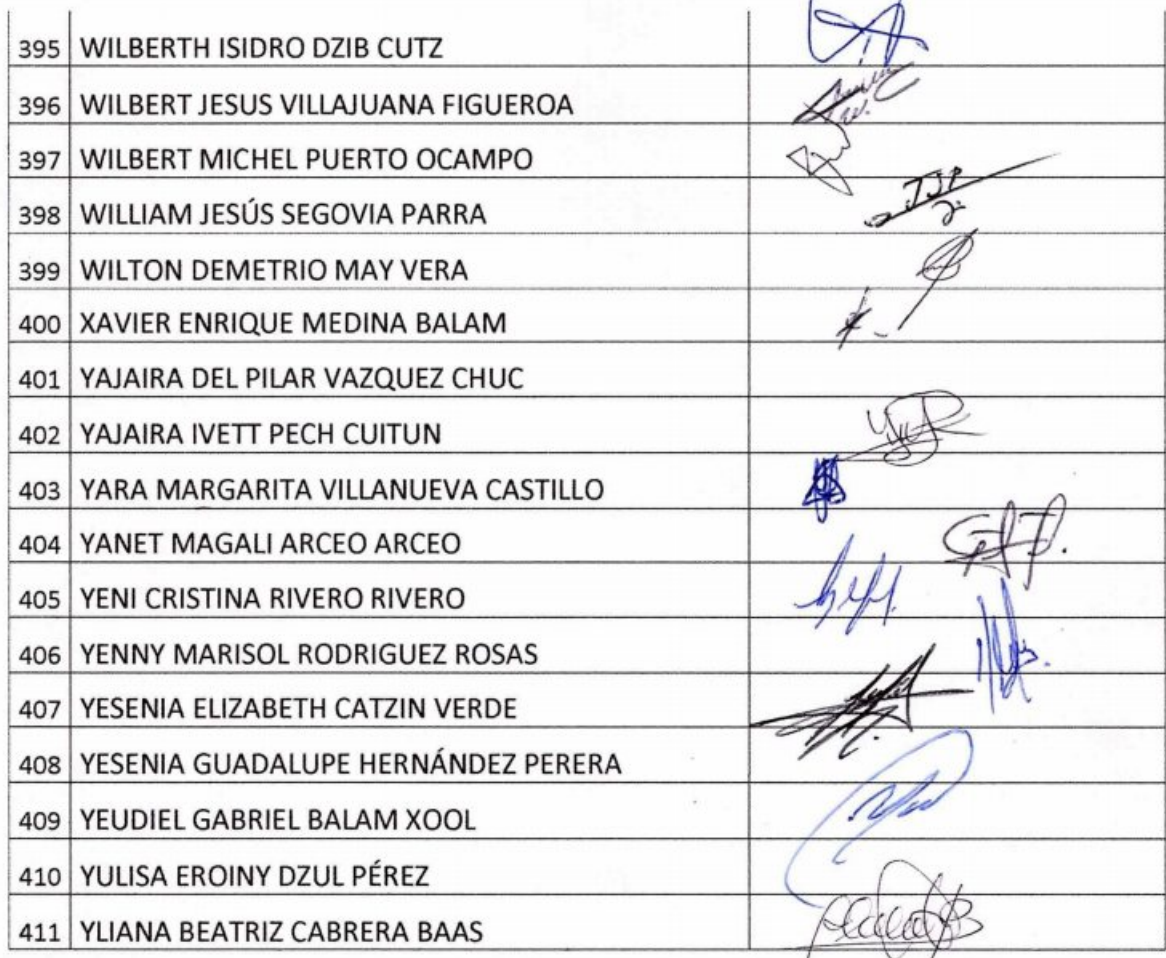 395 WILBERTH ISIDRO DZIB CUTZ
396 WILBERT JESUS VILLAJUANA FIGUEROA
397 WILBERT MICHEL PUERTO OCAMPO
398 WILLIAM JESÚS SEGOVIA PARRA
399 WILTON DEMETRIO MAY VERA
400 XAVIER ENRIQUE MEDINA BALAM
401 YAJAIRA DEL PILAR VAZQUEZ CHUC
402 YAJAIRA IVETT PECH CUITUN
403 YARA MARGARITA VILLANUEVA CASTILLO
404 YANET MAGALI ARCEO ARCEO
405 YENI CRISTINA RIVERO RIVERO
406 YENNY MARISOL RODRIGUEZ ROSAS
407 YESENIA ELIZABETH CATZIN VERDE
408 YESENIA GUADALUPE HERNÁNDEZ PERERA
409 YEUDIEL GABRIEL BALAM XOOL
410 YULISA EROINY DZUL PÉREZ
411 YLIANA BEATRIZ CABRERA BAAS